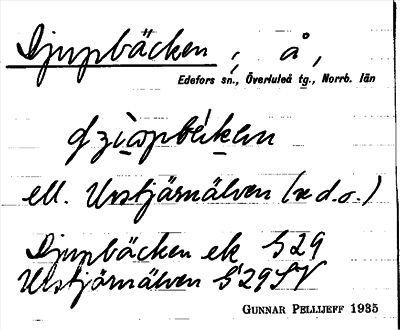 Djupbäcken, å,
Edefors sn., Överluleå tg., Norrb. län
ell. Urstjärnälven (se d.o.)
Djupbäcken ek S29
Urstjärnälven S29SV
GUNNAR PELLIJEFF 1935